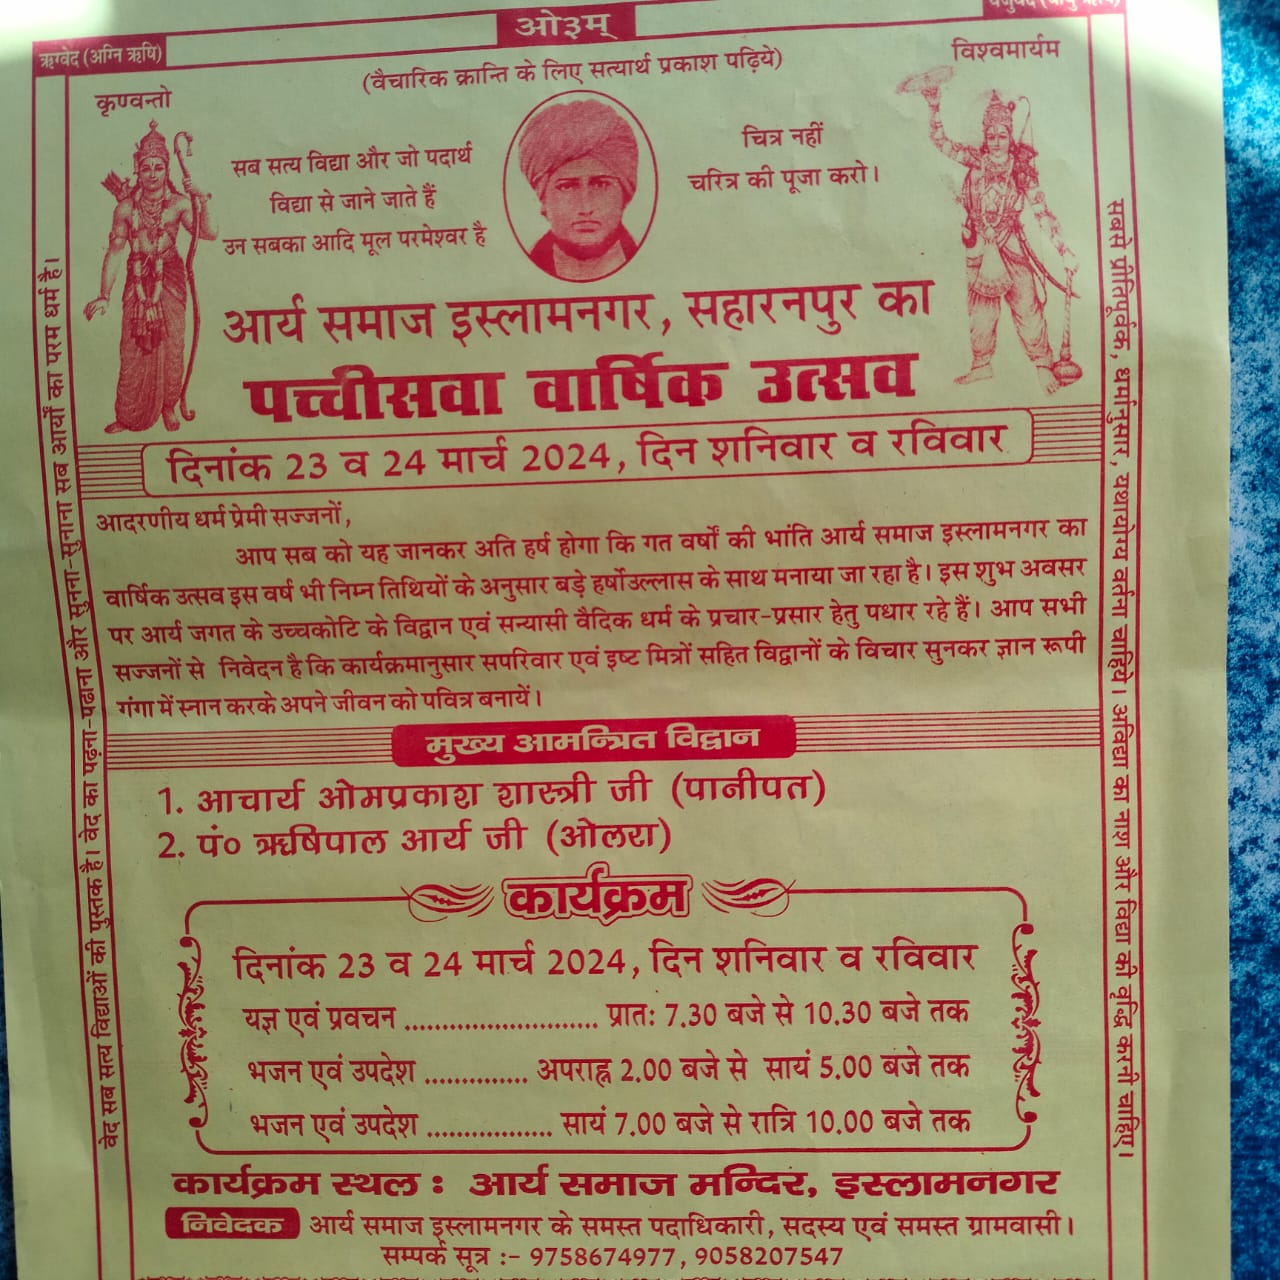 ओ३म्
ऋग्वेद (अग्नि ऋषि)
(वैचारिक क्रान्ति के लिए सत्यार्थ प्रकाश पढ़िये)
कृण्वन्तो
विश्वमार्यम
सब सत्य विद्या और जो पदार्थ
विद्या से जाने जाते हैं
उन सबका आदि मूल परमेश्वर है
चित्र नहीं
चरित्र की पूजा करो।
आर्य समाज इस्लामनगर, सहारनपुर का
पच्चीसवा वार्षिक उत्सव
दिनांक 23 व 24 मार्च 2024, दिन शनिवार व रविवार
आदरणीय धर्म प्रेमी सज्जनों,
आप सब को यह जानकर अति हर्ष होगा कि गत वर्षों की भांति आर्य समाज इस्लामनगर का
वार्षिक उत्सव इस वर्ष भी निम्न तिथियों के अनुसार बड़े हर्षोउल्लास के साथ मनाया जा रहा है। इस शुभ अवसर
पर आर्य जगत के उच्चकोटि के विद्वान एवं सन्यासी वैदिक धर्म के प्रचार-प्रसार हेतु पधार रहे हैं। आप सभी
सज्जनों से निवेदन है कि कार्यक्रमानुसार सपरिवार एवं इष्ट मित्रों सहित विद्वानों के विचार सुनकर ज्ञान रूपी
गंगा में स्नान करके अपने जीवन को पवित्र बनायें।
मुख्य आमन्त्रित विद्वान
1. आचार्य ओमप्रकाश शास्त्री जी (पानीपत)
2. पं० ऋषिपाल आर्य जी (ओलरा)
कार्यक्रम
दिनांक 23 व 24 मार्च 2024, दिन शनिवार व रविवार
यज्ञ एवं प्रवचन ............................ प्रातः 7.30 बजे से 10.30 बजे तक
भजन एवं उपदेश ............... अपराह्न 2.00 बजे से सायं 5.00 बजे तक
भजन एवं उपदेश .................. सायं 7.00 बजे से रात्रि 10.00 बजे तक
कार्यक्रम स्थल : आर्य समाज मन्दिर, इस्लामनगर
निवेदक आर्य समाज इस्लामनगर के समस्त पदाधिकारी, सदस्य एवं समस्त ग्रामवासी।
सम्पर्क सूत्र :- 9758674977, 9058207547
वेद सब सत्य विद्याओं की पुस्तक है। वेद का पढ़ना-पढाना और सुनना-सुनाना सब आर्यों का परम धर्म है।
सबसे प्रीतिपूर्वक, धर्मानुसार, यथायोग्य वर्तना चाहिये। अविद्या का नाश और विद्या की वृद्धि करनी चाहिए।